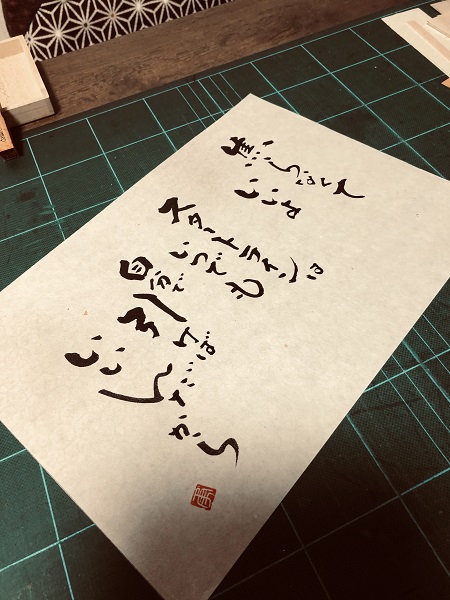 焦らなくて
いいよ
スタートラインは
いつでも
自分で
引けば
いいんだから